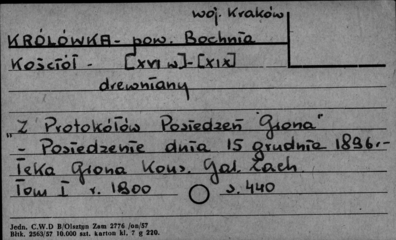 woj. Kraków
KRÓLÓWKA - pow. Bochnia
Kościół - [XVI w] - [XIX]
drewniany
"Z Protokółów Posiedzeń Grona"
- Posiedzenie dnia 15 grudnia 1896.-
Teka Grona Kons. Gal. Zach.
Tom I r. 1900 s. 440
Jedn. C.W.D B/Olsztyn Zam 2776 /on/57
Błtk. 2563/57 10.000 szt. karton kl. 7 g 220.